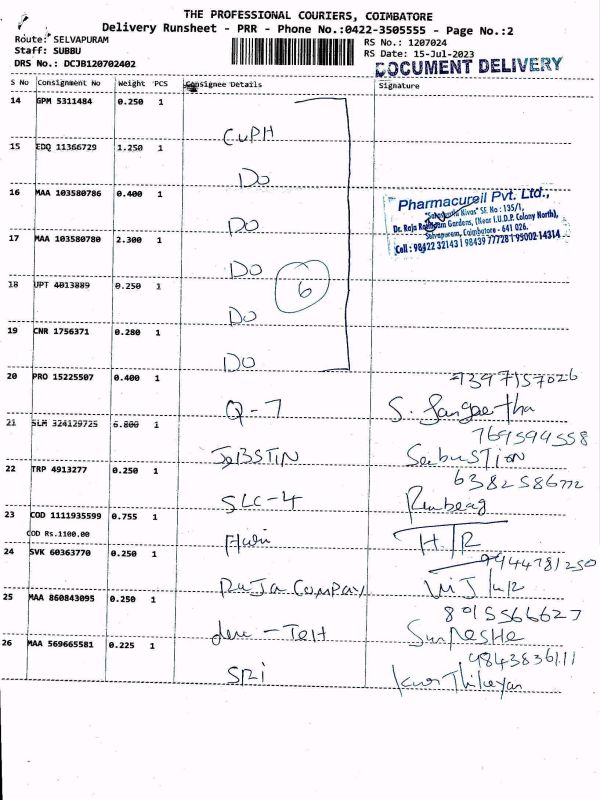 THE PROFESSIONAL COURIERS, COIMBATORE
Delivery Runsheet - PRR - Phone No.:0422-3505555 - Page No.:2
Route: SELVAPURAM
RS No.: 1207024
Staff: SUBBU
RS Date: 15-Jul-2023
DRS No.: DCJB120702402
DOCUMENT DELIVERY
S No Consignment No Weight PCS Consignee Details Signature
14 GPM 5311484 0.250 1
CUPH
15 EDQ 11366729 1.250 1
Do
16 MAA 103580786 0.400 1
Do
Pharmacureil Pvt. Ltd.,
Nivas" SF. No : 135/1,
Dr. Raja Gardens, (Near I.U.D.P. Colony North),
Selvapuram, Coimbatore - 641 026.
Cell : 98422 32143 | 98439 77728 | 95002-14314
17 MAA 103580780 2.300 1
Do
6
18 UPT 4013889 0.250 1
Do
19 CNR 1756371 0.280 1
Do
20 PRO 15225507 0.400 1
9397157026
Q-7 S. Sangeetha
21 SLM 324129725 6.800 1
769594558
JOBSTIN
22 TRP 4913277 0.250 1
6382586772
SLC-4
23 COD 1111935599 0.755 1
COD Rs.1100.00
Hari H/R
24 SVK 60363770 0.250 1
9944781250
RaJa COMPANY
25 MAA 860843095 0.250 1
8015566627
26 MAA 569665581 0.225 1
9843836111
SRi Karthikeyan